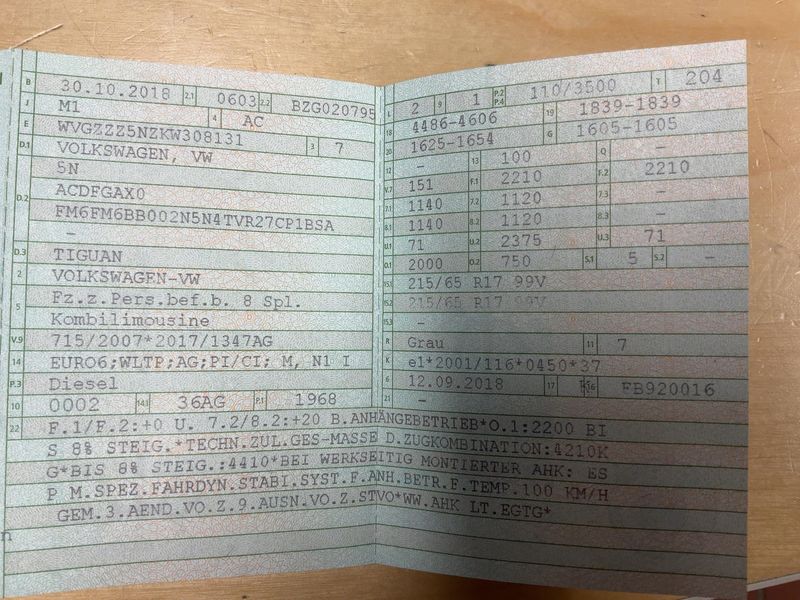 B 30.10.2018 2.1 0603 2.2 BZG020795
J M1 4 AC
E WVGZZZ5NZKW308131 3 7
D.1 VOLKSWAGEN, VW
5N
D.2 ACDFGAX0
FM6FM6BB002N5N4TVR27CP1BSA
–
D.3 TIGUAN
2 VOLKSWAGEN-VW
5 Fz.z.Pers.bef.b. 8 Spl.
Kombilimousine
V.9 715/2007*2017/1347AG
14 EURO6;WLTP;AG;PI/CI; M, N1 I
P.3 Diesel
10 0002 14.1 36AG P.1 1968
L 2 9 1 P.2 P.4 110/3500 T 204
18 4486-4606 19 1839-1839
20 1625-1654 G 1605-1605
– 13 100 Q –
V.7 151 F.1 2210 F.2 2210
7.1 1140 7.2 1120 7.3 –
8.1 1140 8.2 1120 8.3 –
U.1 71 U.2 2375 U.3 71
O.1 2000 O.2 750 S.1 5 S.2 –
15.1 215/65 R17 99V
15.2 215/65 R17 99V
15.3 –
R Grau 11 7
K e1*2001/116*0450*37
6 12.09.2018 17 K 16 FB920016
21 –
22 F.1/F.2:+0 U. 7.2/8.2:+20 B.ANHÄNGEBETRIEB*O.1:2200 BI
S 8% STEIG.*TECHN.ZUL.GES-MASSE D.ZUGKOMBINATION:4210K
G*BIS 8% STEIG.:4410*BEI WERKSEITIG MONTIERTER AHK: ES
P M.SPEZ.FAHRDYN.STABI.SYST.F.ANH.BETR.F.TEMP.100 KM/H
GEM.3.AEND.VO.Z.9.AUSN.VO.Z.STVO*WW.AHK LT.EGTG*
n